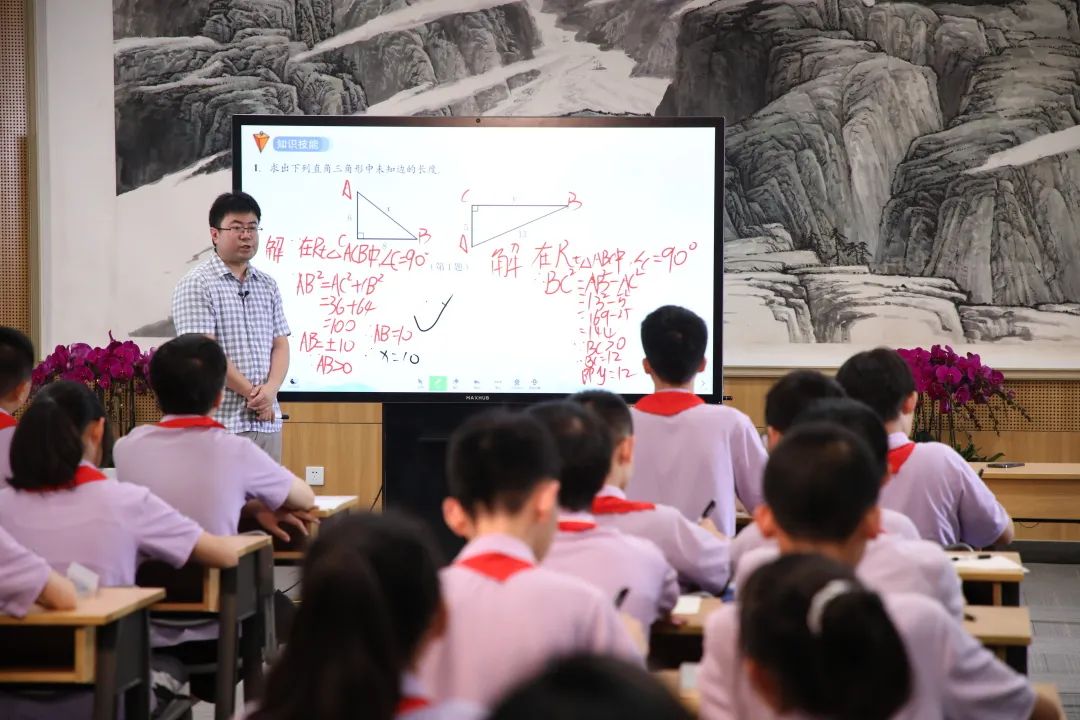 知识技能
1. 求出下列直角三角形中未知边的长度.
A
6
x
C
B
8
C
B
5
13
A
(第1题)
解 在Rt△ACB中 ∠C=90°
AB²=AC²+B²
=36+64
=100
AB=±10
AB>0
∴AB=10
x=10
解 在Rt△ABC中 ∠C=90°
BC²=AB²-AC²
=13²-5²
=169-25
=144
∵BC>0
∴BC=12
即y=12
MAXHUB